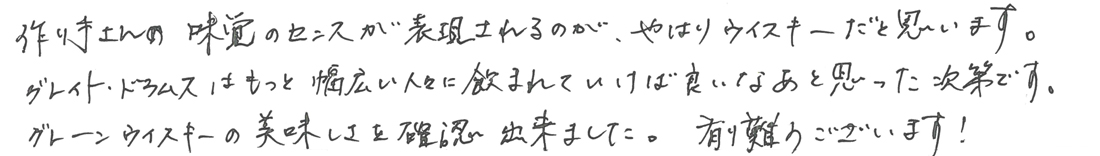 作り手さんの味覚のセンスが表現されるのが、やはりウイスキーだと思います。
グレイト・ドラムスはもっと幅広い人々に飲まれていけば良いなあと思った次第です。
グレーンウイスキーの美味しさを確認出来ました。有り難うございます！